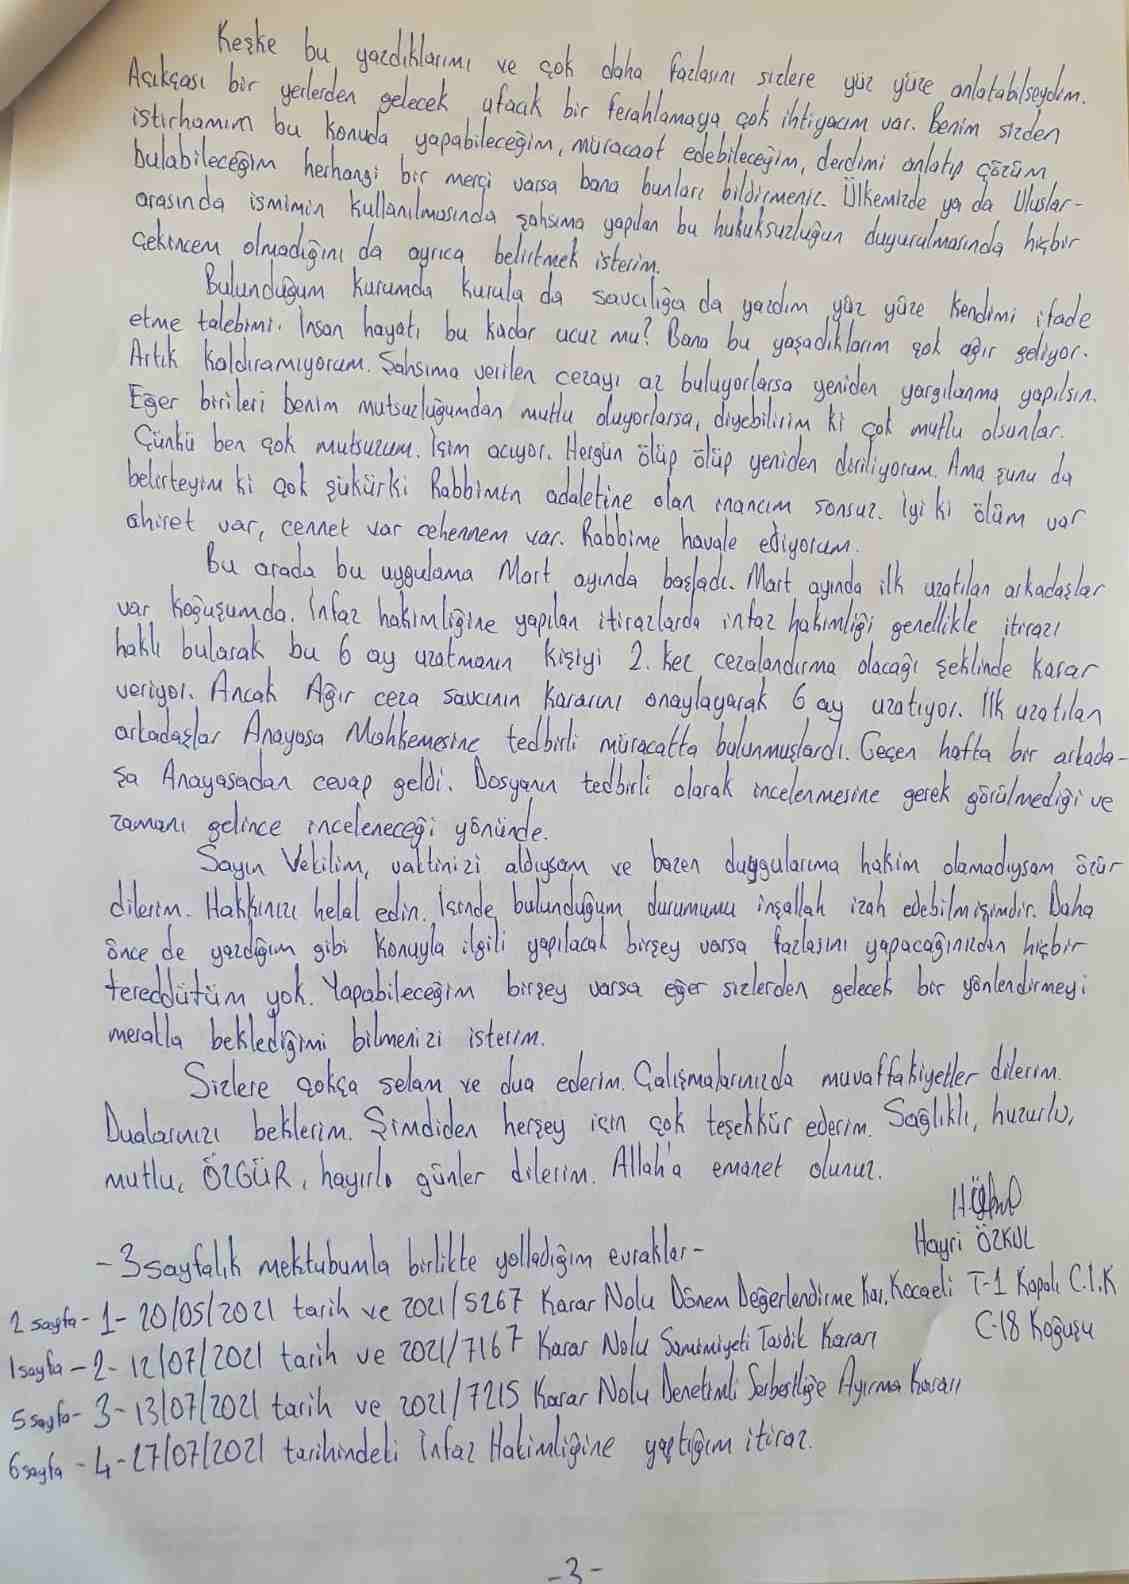 Keşke bu yazdıklarımı ve çok daha fazlasını sizlere yüz yüze anlatabilseydim.
Açıkçası bir yerlerden gelecek ufacık bir ferahlamaya çok ihtiyacım var. Benim sizden
istirhamım bu konuda yapabileceğim, müracaat edebileceğim, derdimi anlatıp çözüm
bulabileceğim herhangi bir merci varsa bana bunları bildirmeniz. Ülkemizde ya da Uluslar-
arasında ismimin kullanılmasında şahsıma yapılan bu hukuksuzluğun duyurulmasında hiçbir
çekincem olmadığını da ayrıca belirtmek isterim.
Bulunduğum kurumda kurula da savcılığa da yazdım yüz yüze kendimi ifade
etme talebimi. İnsan hayatı bu kadar ucuz mu? Bana bu yaşadıklarım çok ağır geliyor.
Artık kaldıramıyorum. Şahsıma verilen cezayı az buluyorlarsa yeniden yargılanma yapılsın.
Eğer birileri benim mutsuzluğumdan mutlu oluyorlarsa, diyebilirim ki çok mutlu olsunlar.
Çünkü ben çok mutsuzum. İçim acıyor. Hergün ölüp ölüp yeniden diriliyorum. Ama şunu da
belirteyim ki çok şükürki Rabbimin adaletine olan inancım sonsuz. İyi ki ölüm var
ahiret var, cennet var cehennem var. Rabbime havale ediyorum.
Bu arada bu uygulama Mart ayında başladı. Mart ayında ilk uzatılan arkadaşlar
var koğuşumda. İnfaz hakimliğine yapılan itirazlarda infaz hakimliği genellikle itirazı
haklı bularak bu 6 ay uzatmanın kişiyi 2. kez cezalandırma olacağı şeklinde karar
veriyor. Ancak Ağır ceza savcının kararını onaylayarak 6 ay uzatıyor. İlk uzatılan
arkadaşlar Anayasa Mahkemesine tedbirli müracatta bulunmuşlardı. Geçen hafta bir arkada-
şa Anayasadan cevap geldi. Dosyanın tedbirli olarak incelenmesine gerek görülmediği ve
zamanı gelince inceleneceği yönünde.
Sayın Vekilim, vaktinizi aldıysam ve bazen duygularıma hakim olamadıysam özür
dilerim. Hakkınızı helal edin. İçinde bulunduğum durumumu inşallah izah edebilmişimdir. Daha
önce de yazdığım gibi konuyla ilgili yapılacak birşey varsa fazlasını yapacağınızdan hiçbir
tereddütüm yok. Yapabileceğim birşey varsa eğer sizlerden gelecek bir yönlendirmeyi
merakla beklediğimi bilmenizi isterim.
Sizlere çokça selam ve dua ederim. Çalışmalarınızda muvaffakiyetler dilerim.
Dualarınızı beklerim. Şimdiden herşey için çok teşekkür ederim. Sağlıklı, huzurlu,
mutlu, ÖZGÜR, hayırlı günler dilerim. Allah'a emanet olunuz.
Hayri ÖZKUL
- 3 sayfalık mektubumla birlikte yolladığım evraklar -
Kocaeli T-1 Kapalı C.İ.K
C-18 Koğuşu
2 sayfa - 1- 20/05/2021 tarih ve 2021/5267 Karar Nolu Dönem Değerlendirme Kar.
1 sayfa - 2- 12/07/2021 tarih ve 2021/7167 Karar Nolu Samimiyeti Tasdik Kararı
5 sayfa - 3- 13/07/2021 tarih ve 2021/7215 Karar Nolu Denetimli Serbestliğe Ayırma Kararı
6 sayfa - 4- 27/07/2021 tarihindeki İnfaz Hakimliğine yaptığım itiraz.
-3-